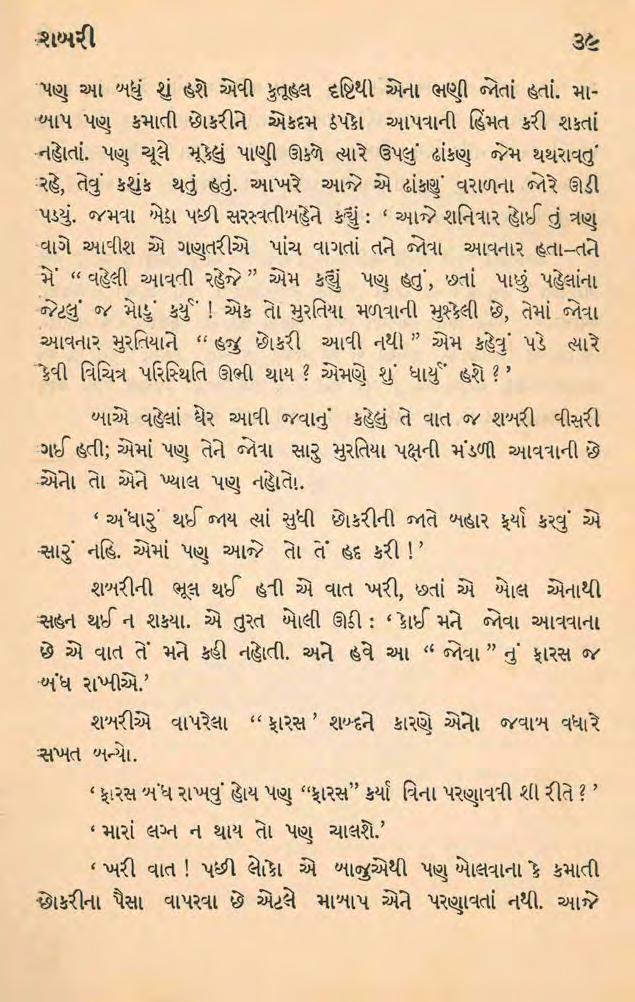 શબરી ૩૯
પણ આ બધું શું હશે એવી કુતૂહલ દૃષ્ટિથી એના ભણી જોતાં હતાં. મા-
બાપ પણ કમાતી છોકરીને એકદમ ઠપકો આપવાની હિંમત કરી શકતાં
નહોતાં. પણ ચૂલે મૂકેલું પાણી ઊકળે ત્યારે ઉપલું ઢાંકણ જેમ થથરાવતું
રહે, તેવું કશુંક થતું હતું. આખરે આજે એ ઢાંકણું વરાળના જોરે ઊડી
પડયું. જમવા બેઠા પછી સરસ્વતીબહેને કહ્યું : ‘ આજે શનિવાર હોઈ તું ત્રણ
વાગે આવીશ એ ગણતરીએ પાંચ વાગતાં તને જોવા આવનાર હતા–તને
મેં “ વહેલી આવતી રહેજે ” એમ કહ્યું પણ હતું, છતાં પાછું પહેલાંના
જેટલું જ મોડું કર્યું ! એક તો મુરતિયા મળવાની મુશ્કેલી છે, તેમાં જોવા
આવનાર મુરતિયાને “ હજુ છોકરી આવી નથી ” એમ કહેવું પડે ત્યારે
કેવી વિચિત્ર પરિસ્થિતિ ઊભી થાય ? એમણે શું ધાર્યું હશે ? ’
બાએ વહેલાં ઘેર આવી જવાનું કહેલું તે વાત જ શબરી વીસરી
ગઈ હતી; એમાં પણ તેને જોવા સારુ મુરતિયા પક્ષની મંડળી આવવાની છે
એનો તો એને ખ્યાલ પણ નહોતો.
‘ અંધારું થઈ જાય ત્યાં સુધી છોકરીની જાતે બહાર ફર્યા કરવું એ
સારું નહિ. એમાં પણ આજે તો તેં હદ કરી ! ’
શબરીની ભૂલ થઈ હતી એ વાત ખરી, છતાં એ બોલ એનાથી
સહન થઈ ન શકયા. એ તુરત બોલી ઊઠી : ‘ કોઈ મને જોવા આવવાના
છે એ વાત તેં મને કહી નહોતી. અને હવે આ “ જોવા ” નું ફારસ જ
બંધ રાખીએ.’
શબરીએ વાપરેલા “ ફારસ ’ શબ્દને કારણે એનો જવાબ વધારે
સખત બન્યો.
‘ ફારસ બંધ રાખવું હોય પણ “ફારસ” કર્યા વિના પરણાવવી શી રીતે ? ’
‘ મારાં લગ્ન ન થાય તો પણ ચાલશે.’
‘ ખરી વાત ! પછી લોકો એ બાજુએથી પણ બોલવાના કે કમાતી
છોકરીના પૈસા વાપરવા છે એટલે માબાપ એને પરણાવતાં નથી. આજે